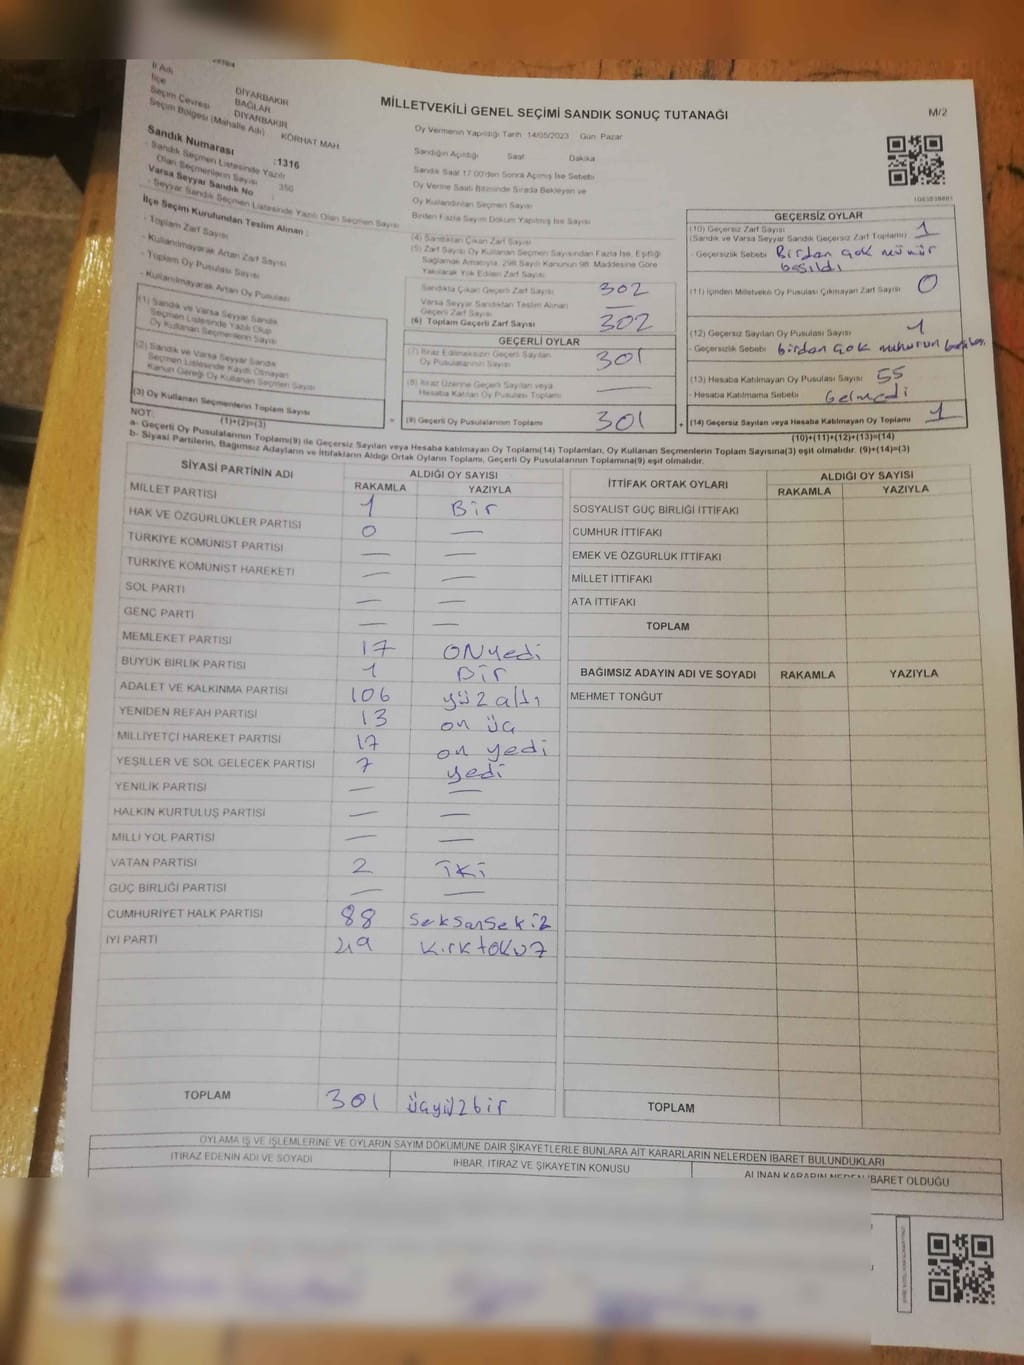 İl Adı
İlçe DİYARBAKIR
Seçim Çevresi BAĞLAR
Seçim Bölgesi (Mahalle Adı) DİYARBAKIR
KÖRHAT MAH.
Sandık Numarası :1316
- Sandık Seçmen Listesinde Yazılı
Olan Seçmenlerin Sayısı 350
Varsa Seyyar Sandık No :
- Seyyar Sandık Seçmen Listesinde Yazılı Olan Seçmen Sayısı
İlçe Seçim Kurulundan Teslim Alınan :
- Toplam Zarf Sayısı
- Kullanılmayarak Artan Zarf Sayısı
- Toplam Oy Pusulası Sayısı
- Kullanılmayarak Artan Oy Pusulası
(1) Sandık ve Varsa Seyyar Sandık
Seçmen Listesinde Yazılı Olup
Oy Kullanan Seçmenlerin Sayısı
(2) Sandık ve Varsa Seyyar Sandık
Seçmen Listesinde Kayıtlı Olmayan
Kanun Gereği Oy Kullanan Seçmen Sayısı
(3) Oy Kullanan Seçmenlerin Toplam Sayısı
(1)+(2)=(3)
MİLLETVEKİLİ GENEL SEÇİMİ SANDIK SONUÇ TUTANAĞI
M/2
Oy Vermenin Yapıldığı Tarih 14/05/2023 Gün Pazar
Sandığın Açıldığı Saat Dakika
Sandık Saat 17:00'den Sonra Açılmış İse Sebebi
Oy Verme Saati Bitiminde Sırada Bekleyen ve
Oy Kullandırılan Seçmen Sayısı
Birden Fazla Sayım Döküm Yapılmış İse Sayısı
(4) Sandıktan Çıkan Zarf Sayısı
(5) Zarf Sayısı Oy Kullanan Seçmen Sayısından Fazla İse, Eşitliği
Sağlamak Amacıyla, 298 Sayılı Kanunun 98. Maddesine Göre
Yakılarak Yok Edilen Zarf Sayısı
Sandıkta Çıkan Geçerli Zarf Sayısı 302
Varsa Seyyar Sandıktan Teslim Alınan
Geçerli Zarf Sayısı —
(6) Toplam Geçerli Zarf Sayısı 302
GEÇERLİ OYLAR
(7) İtiraz Edilmeksizin Geçerli Sayılan
Oy Pusulalarının Sayısı 301
(8) İtiraz Üzerine Geçerli Sayılan veya
Hesaba Katılan Oy Pusulası Toplamı —
= (9) Geçerli Oy Pusulalarının Toplamı 301 +
GEÇERSİZ OYLAR
(10) Geçersiz Zarf Sayısı 1
(Sandık ve Varsa Seyyar Sandık Geçersiz Zarf Toplamı)
- Geçersizlik Sebebi Birdan çok mühür
basıldı
(11) İçinden Milletvekili Oy Pusulası Çıkmayan Zarf Sayısı 0
(12) Geçersiz Sayılan Oy Pusulası Sayısı 1
- Geçersizlik Sebebi birdan çok muhurun
(13) Hesaba Katılmayan Oy Pusulası Sayısı 55
- Hesaba Katılmama Sebebi Gelmedi
(14) Geçersiz Sayılan veya Hesaba Katılmayan Oy Toplamı 1
(10)+(11)+(12)+(13)=(14)
NOT:
a- Geçerli Oy Pusulalarının Toplamı(9) ile Geçersiz Sayılan veya Hesaba katılmayan Oy Toplamı(14) Toplamları, Oy Kullanan Seçmenlerin Toplam Sayısına(3) eşit olmalıdır. (9)+(14)=(3)
b- Siyasi Partilerin, Bağımsız Adayların ve İttifakların Aldığı Ortak Oyların Toplamı, Geçerli Oy Pusulalarının Toplamına(9) eşit olmalıdır.
SİYASİ PARTİNİN ADI ALDIĞI OY SAYISI
RAKAMLA YAZIYLA
MİLLET PARTİSİ 1 Bir
HAK VE ÖZGÜRLÜKLER PARTİSİ 0 —
TÜRKİYE KOMÜNİST PARTİSİ — —
TÜRKİYE KOMÜNİST HAREKETİ — —
SOL PARTİ — —
GENÇ PARTİ — —
MEMLEKET PARTİSİ 17 ONyedi
BÜYÜK BİRLİK PARTİSİ 1 Bir
ADALET VE KALKINMA PARTİSİ 106 yüz altı
YENİDEN REFAH PARTİSİ 13 on üç
MİLLİYETÇİ HAREKET PARTİSİ 17 on yedi
YEŞİLLER VE SOL GELECEK PARTİSİ 7 yedi
YENİLİK PARTİSİ — —
HALKIN KURTULUŞ PARTİSİ — —
MİLLİ YOL PARTİSİ — —
VATAN PARTİSİ 2 iki
GÜÇ BİRLİĞİ PARTİSİ — —
CUMHURİYET HALK PARTİSİ 88 SekSanSekiz
İYİ PARTİ 49 Kırktokuz
TOPLAM 301 üçyüzbir
İTTİFAK ORTAK OYLARI ALDIĞI OY SAYISI
RAKAMLA YAZIYLA
SOSYALİST GÜÇ BİRLİĞİ İTTİFAKI
CUMHUR İTTİFAKI
EMEK VE ÖZGÜRLÜK İTTİFAKI
MİLLET İTTİFAKI
ATA İTTİFAKI
TOPLAM
BAĞIMSIZ ADAYIN ADI VE SOYADI RAKAMLA YAZIYLA
MEHMET TONĞUT
TOPLAM
OYLAMA İŞ VE İŞLEMLERİNE VE OYLARIN SAYIM DÖKÜMÜNE DAİR ŞİKAYETLERLE BUNLARA AİT KARARLARIN NELERDEN İBARET BULUNDUKLARI
İTİRAZ EDENİN ADI VE SOYADI İHBAR, İTİRAZ VE ŞİKAYETİN KONUSU ALINAN KARARIN NEDEN İBARET OLDUĞU